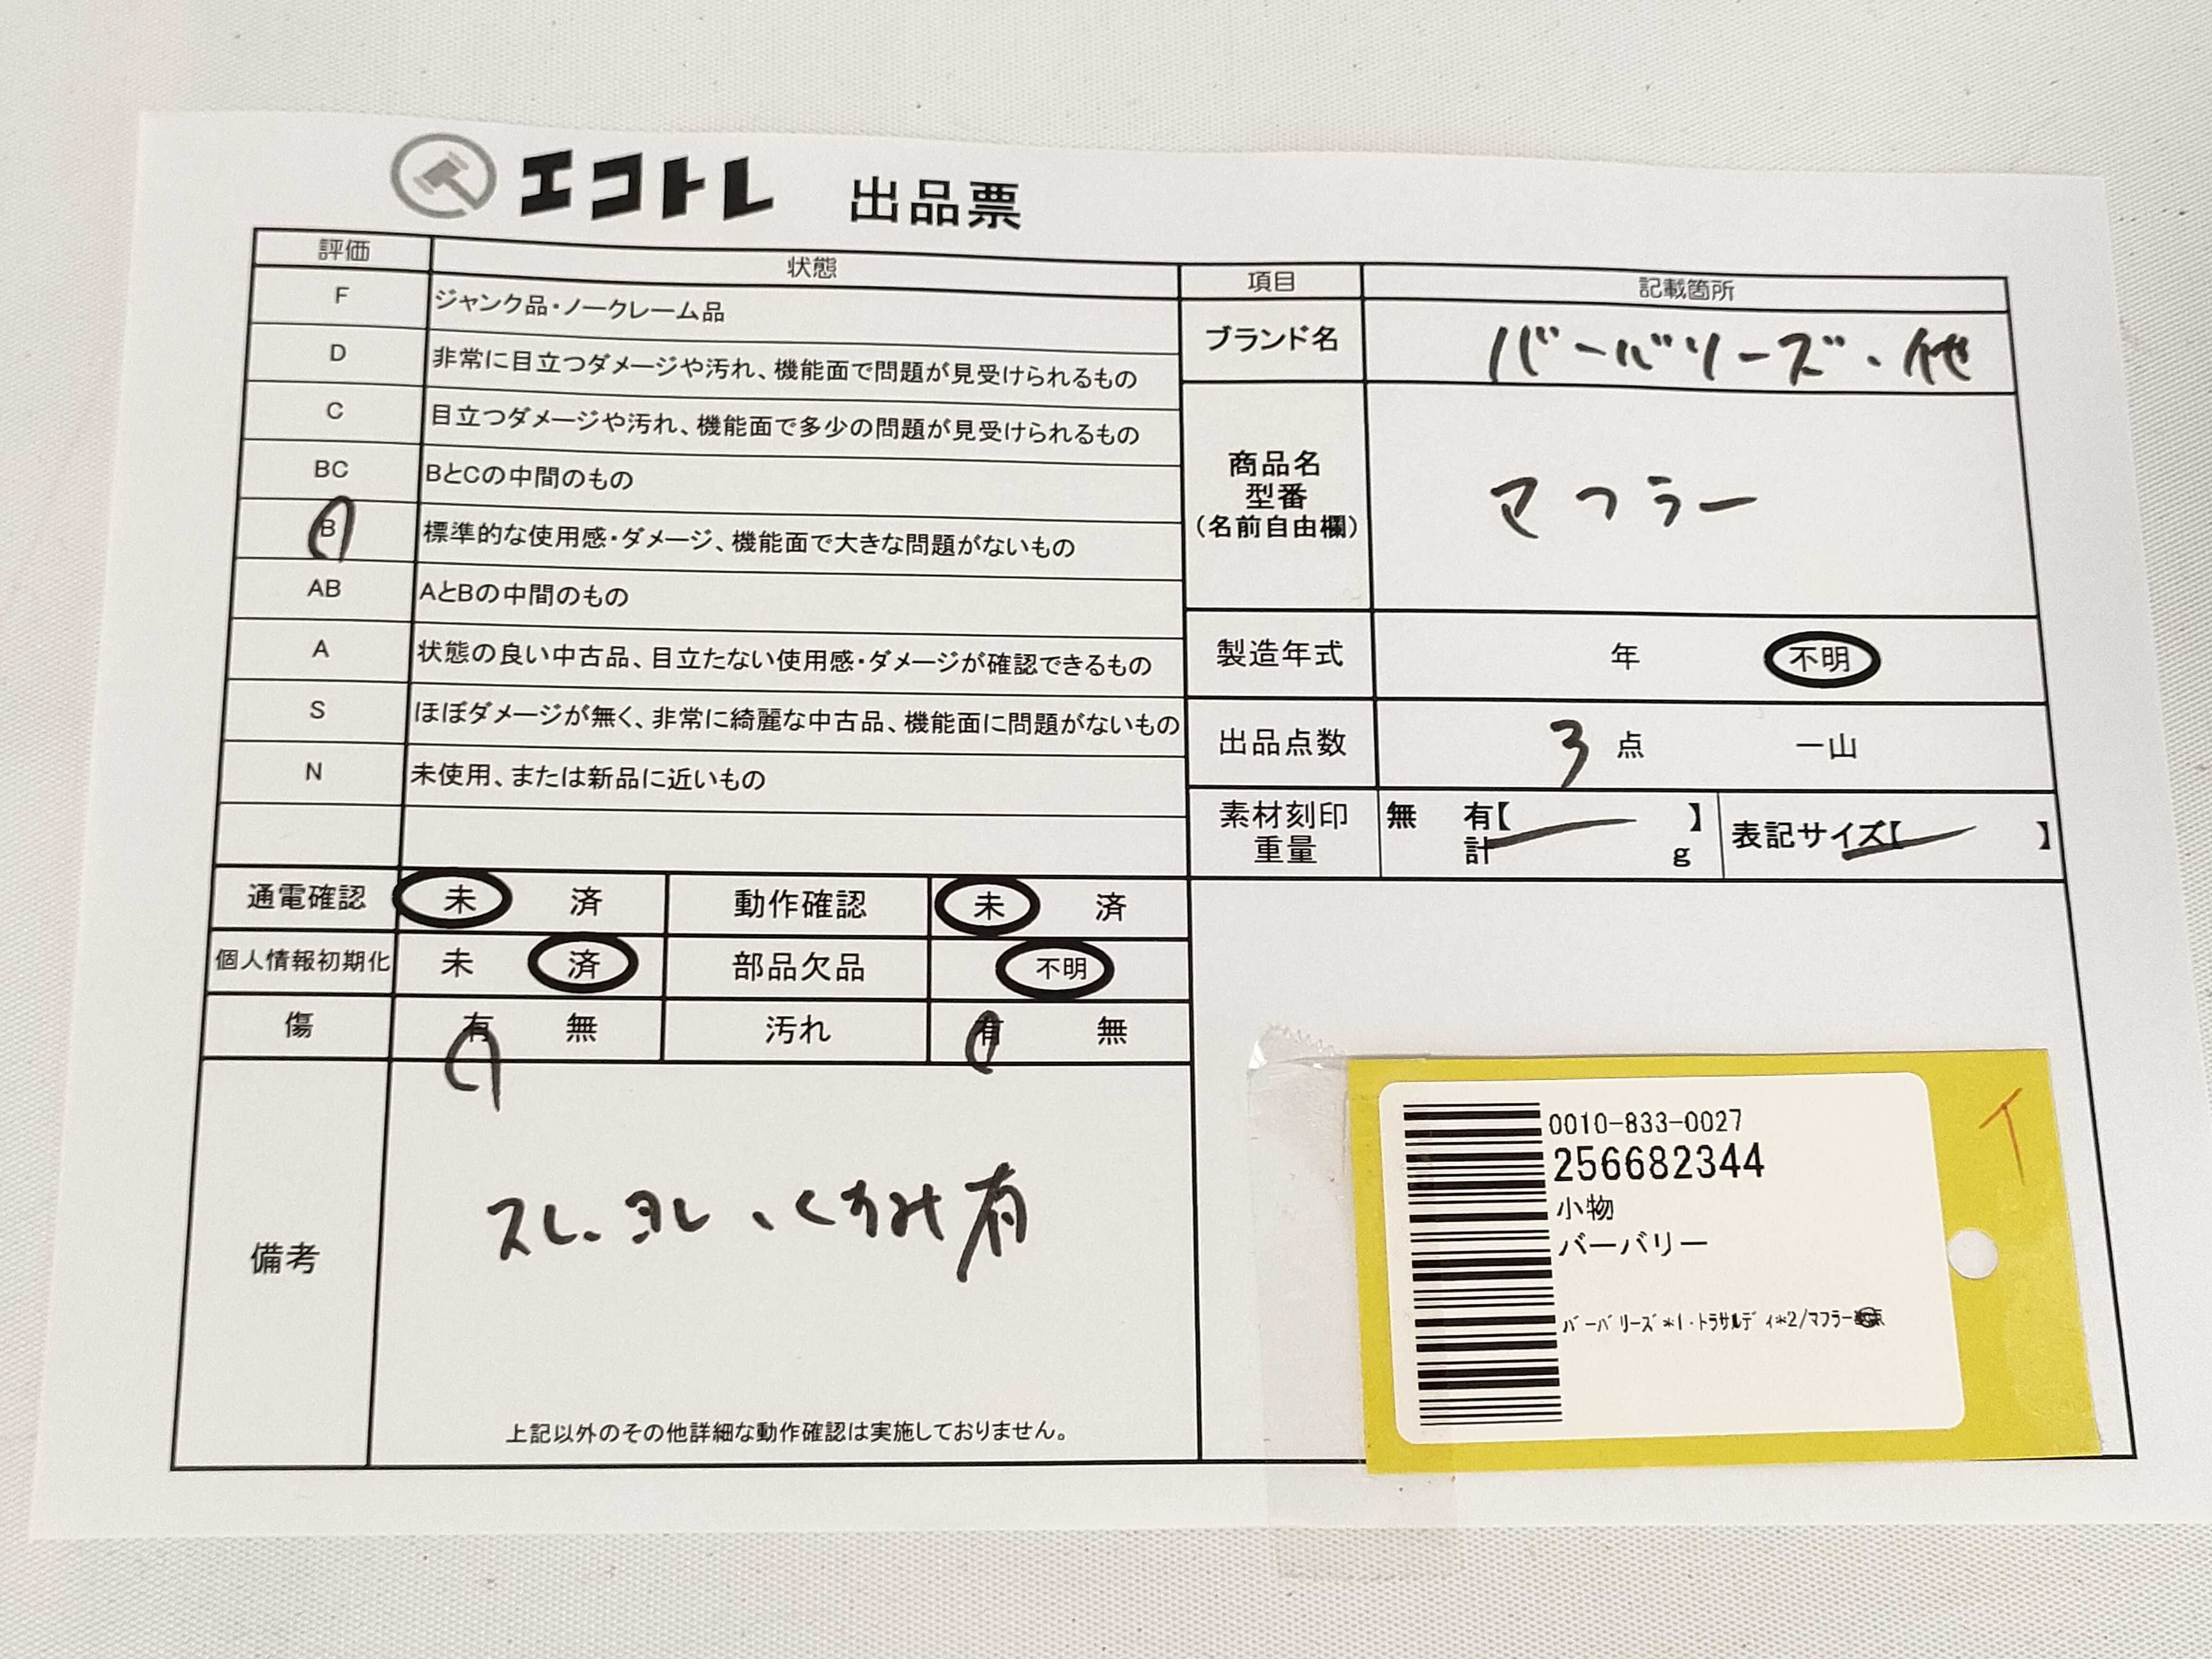 エコトレ 出品票
評価 状態
F ジャンク品・ノークレーム品
D 非常に目立つダメージや汚れ、機能面で問題が見受けられるもの
C 目立つダメージや汚れ、機能面で多少の問題が見受けられるもの
BC BとCの中間のもの
B 標準的な使用感・ダメージ、機能面で大きな問題がないもの
AB AとBの中間のもの
A 状態の良い中古品、目立たない使用感・ダメージが確認できるもの
S ほぼダメージが無く、非常に綺麗な中古品、機能面に問題がないもの
N 未使用、または新品に近いもの
項目 記載箇所
ブランド名 バーバリーズ・他
商品名
型番
(名前自由欄)
マフラー
製造年式 年 不明
出品点数 3 点 一山
素材刻印 無 有【 】
重量 計 g
表記サイズ【 】
通電確認 未 済 動作確認 未 済
個人情報初期化 未 済 部品欠品 不明
傷 有 無 汚れ 有 無
備考
スレ、ヨレ、くすみ有
上記以外のその他詳細な動作確認は実施しておりません。
0010-833-0027
256682344
小物
バーバリー
バーバリーズ*1・トラサルディ*2/マフラー
イ